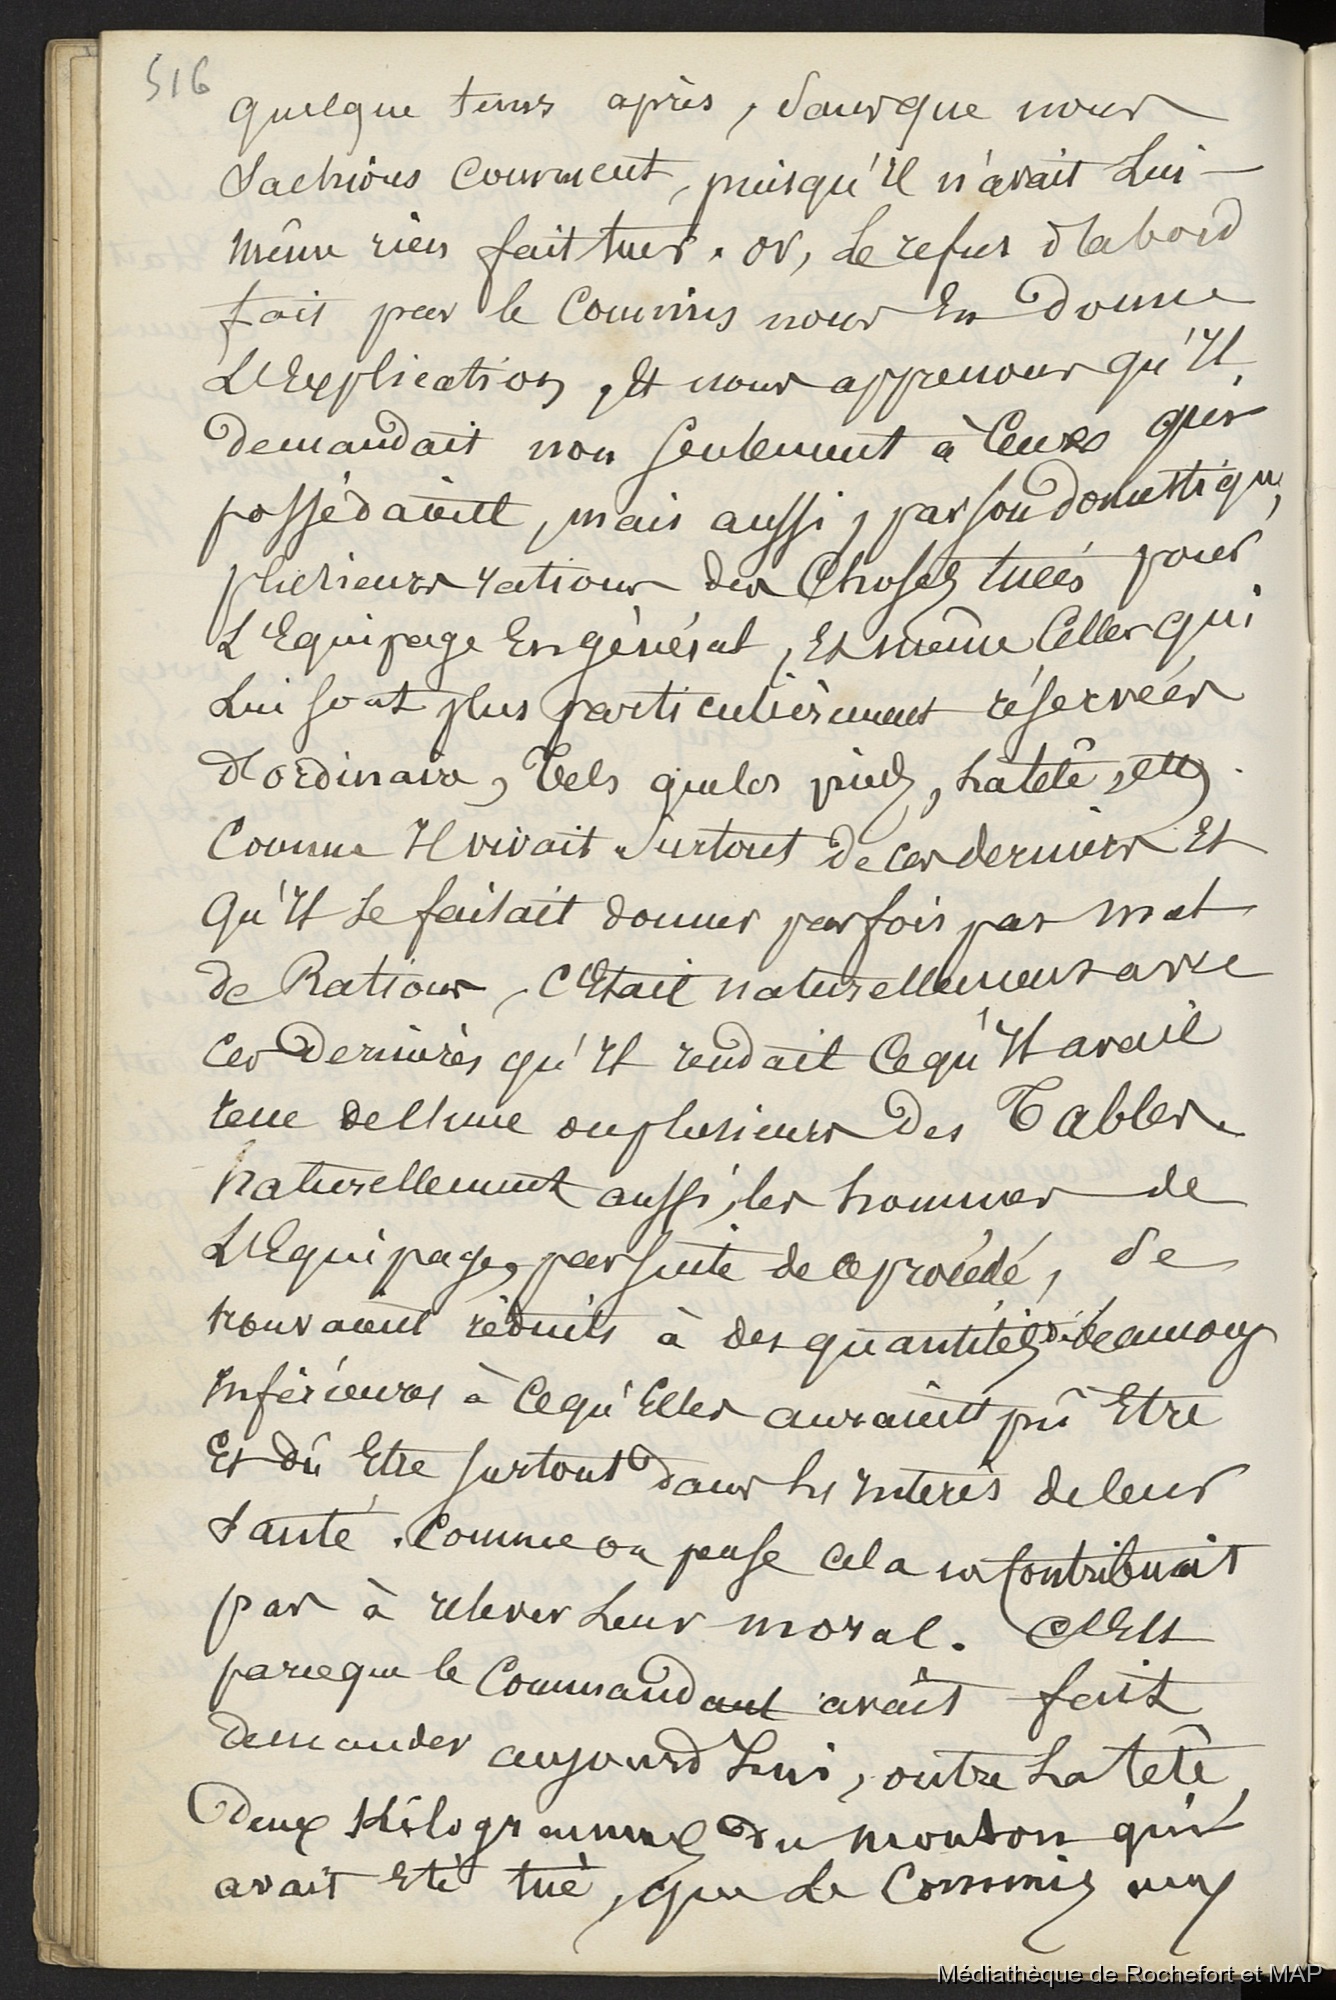 516
quelque tems après, sans que nous
sachions comment, puisqu'il n'avait lui-
même rien fait tuer. or, le refus d'abord
fait par le Commis nous en donne
L'Explication, et nous apprenons qu'il
demandait non seulement à ceux qui
possédaient, mais aussi, par son domestique,
plusieurs rations des choses tuées pour
L'Equipage En général, Et même Celles qui
lui sont plus particulièrement réservées
d'ordinaire, Tels que les pieds, la tête, etc.
Comme Il vivait surtout de ces derniers Et
Qu'il se faisait donner parfois pas mal
de Rations, c'Etait naturellement avec
ces dernières qu'il rendait Ce qu'il avait
reçu de l'une ou plusieurs des Tables.
Naturellement aussi, les hommes de
L'Equipage, par suite de ce procédé, se
trouvaient réduits à des quantités de beaucoup
Inférieures à Ce qu'Elles auraient pû Etre
Et dû Etre surtout dans les Interets de leur
santé. Comme on pense cela ne contribuait
pas à relever leur moral. C'Est
parce que le Commandant avait fait
demander aujourd'hui, outre la tête,
Deux Kilogrammes du mouton qui
avait Eté tué, que Le Commis
Médiathèque de Rochefort et MAP